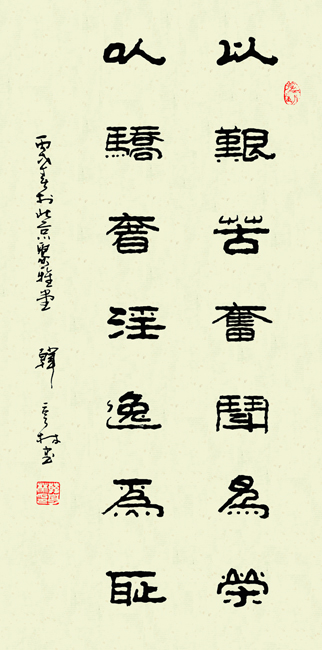 以艱苦奮鬥為榮
以驕奢淫逸為恥
丙戌春於北京聚雅堂 韓寧林書